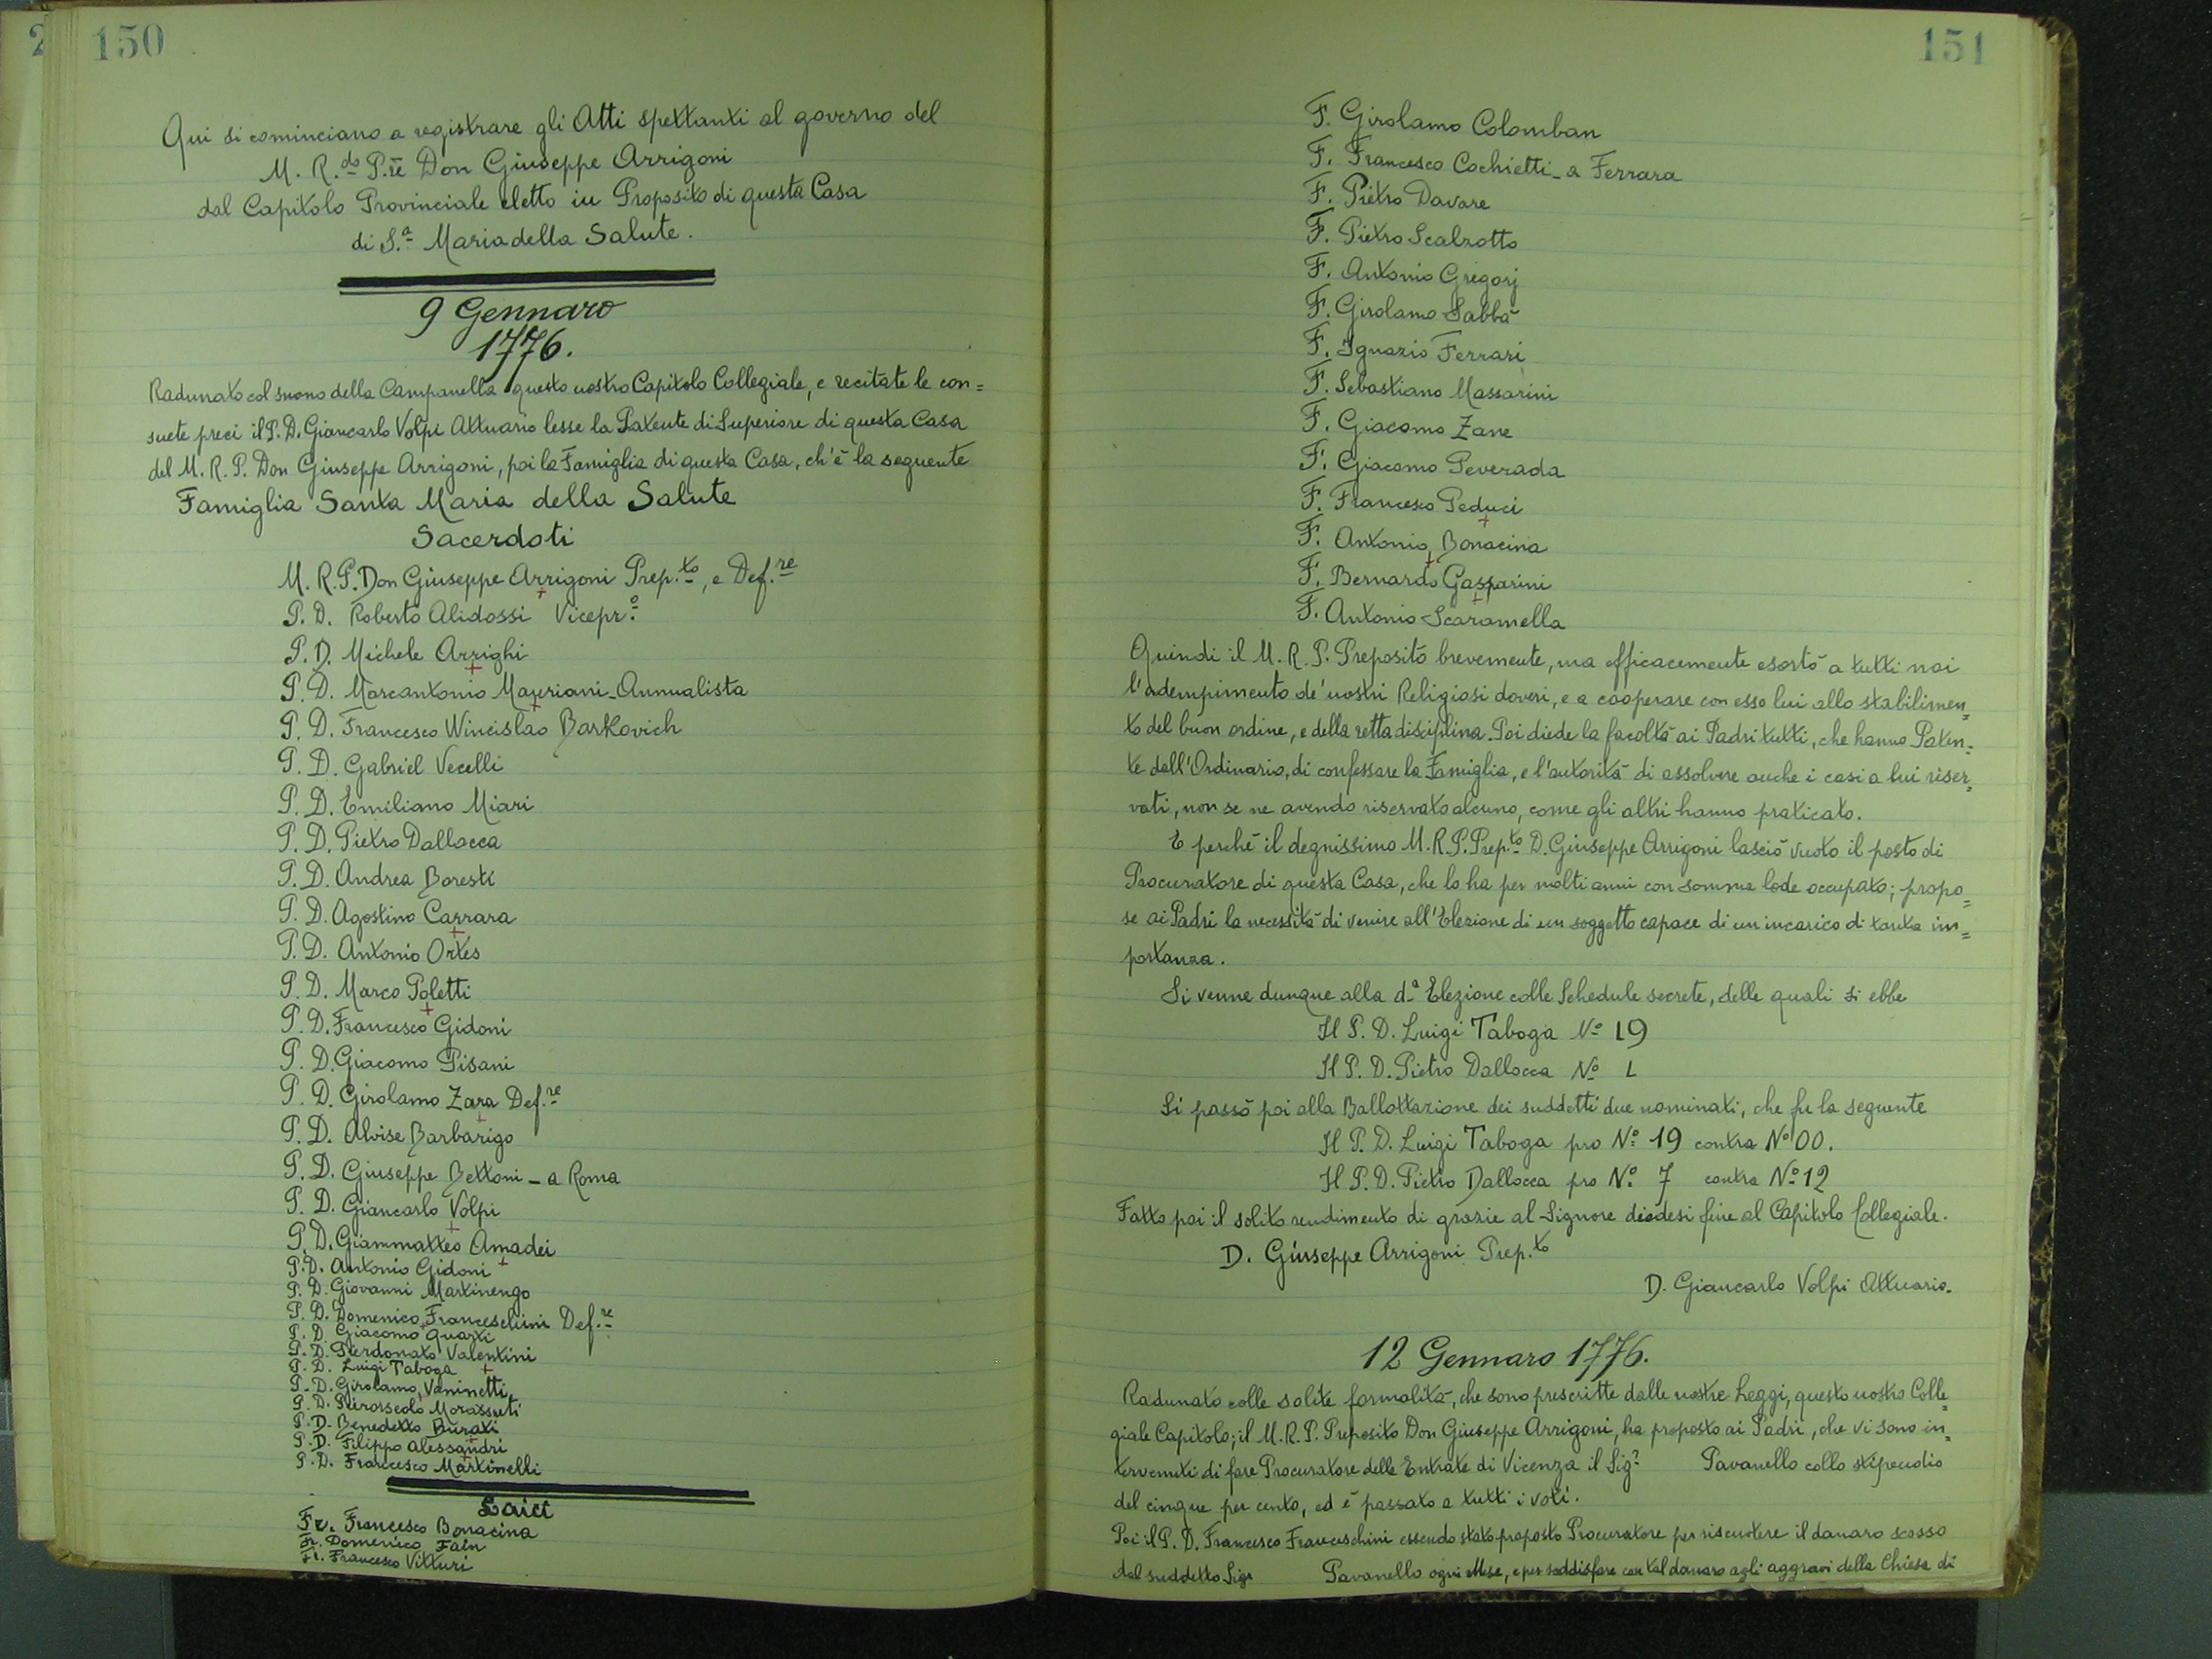 150
Qui si cominciano a registrare gli Atti spettanti al governo del
M. R.do P.re Don Giuseppe Arrigoni
dal Capitolo Provinciale eletto in Proposito di questa Casa
di S.a Maria della Salute.
9 Gennaro
1776.
Radunato col suono della Campanella questo nostro Capitolo Collegiale, e recitate le con=
suete preci il P. D. Giancarlo Volpi Attuario lesse la Patente di Superiore di questa Casa
del M. R. P. Don Giuseppe Arrigoni, poi la Famiglia di questa Casa, ch'è la seguente
Famiglia Santa Maria della Salute
Sacerdoti
M. R. P. Don Giuseppe Arrigoni Prep.to, e Def.re
P. D. Roberto Alidossi Vicepr.o
P. D. Michele Arrighi
P. D. Marcantonio Mauriani - Annualista
P. D. Francesco Wincislao Barkovich
P. D. Gabriel Vecelli
P. D. Emiliano Miari
P. D. Pietro Dallocca
P. D. Andrea Boresti
P. D. Agostino Carrara
P. D. Antonio Ortes
P. D. Marco Poletti
P. D. Francesco Gidoni
P. D. Giacomo Pisani
P. D. Girolamo Zara Def.re
P. D. Alvise Barbarigo
P. D. Giuseppe Bettoni - a Roma
P. D. Giancarlo Volpi
P. D. Giammatteo Amadei
P. D. Antonio Gidoni
P. D. Giovanni Martinengo
P. D. Domenico Franceschini Def.re
P. D. Giacomo Quarti
P. D. Pierdonato Valentini
P. D. Luigi Taboga
P. D. Girolamo Vaninetti
P. D. Pierorseolo Morassuti
P. D. Benedetto Burati
P. D. Filippo Alessandri
P. D. Francesco Martinelli
Laici
Fr. Francesco Bonacina
Fr. Domenico Fain
Fr. Francesco Vitturi
151
F. Girolamo Colomban
F. Francesco Cochietti - a Ferrara
F. Pietro Davare
F. Pietro Scalzotto
F. Antonio Gregorj
F. Girolamo Sabbà
F. Ignazio Ferrari
F. Sebastiano Massarini
F. Giacomo Zane
F. Giacomo Peverada
F. Francesco Peduci
F. Antonio Bonacina
F. Bernardo Gasparini
F. Antonio Scaramella
Quindi il M. R. P. Preposito brevemente, ma efficacemente esortò a tutti noi
l'adempimento de' nostri Religiosi doveri, e a cooperare con esso lui allo stabilimen=
to del buon ordine, e della retta disciplina. Poi diede la facoltà ai Padri tutti, che hanno Paten=
te dall'Ordinario, di confessare la Famiglia, e l'autorità di assolvere anche i casi a lui riser=
vati, non se ne avendo riservato alcuno, come gli altri hanno praticato.
E perchè il degnissimo M. R. P. Prep.to D. Giuseppe Arrigoni lasciò vuoto il posto di
Procuratore di questa Casa, che lo ha per molti anni con somma lode occupato; propo=
se ai Padri la necessità di venire all'Elezione di un soggetto capace di un incarico di tanta im=
portanza.
Si venne dunque alla d.a Elezione colle Schedule secrete, delle quali si ebbe
Il P. D. Luigi Taboga No 19
Il P. D. Pietro Dallocca No 1
Si passò poi alla Ballottazione dei suddetti due nominati, che fu la seguente
Il P. D. Luigi Taboga pro No 19 contra No 00.
Il P. D. Pietro Dallocca pro No 7 contra No 12
Fatto poi il solito rendimento di grazie al Signore diedesi fine al Capitolo Collegiale.
D. Giuseppe Arrigoni Prep.to
D. Giancarlo Volpi Attuario.
12 Gennaro 1776.
Radunato colle solite formalità, che sono prescritte dalle nostre Leggi, questo nostro Colle=
giale Capitolo; il M. R. P. Preposito Don Giuseppe Arrigoni, ha proposto ai Padri, che vi sono in=
tervenuti di fare Procuratore delle Entrate di Vicenza il Sig.r Pavanello collo stipendio
del cinque per cento, ed è passato a tutti i voti.
Poi il P. D. Francesco Franceschini essendo stato proposto Procuratore per riscuotere il danaro scosso
dal suddetto Sigr Pavanello ogni Mese, e per soddisfare con tal danaro agli aggravi della Chiesa di